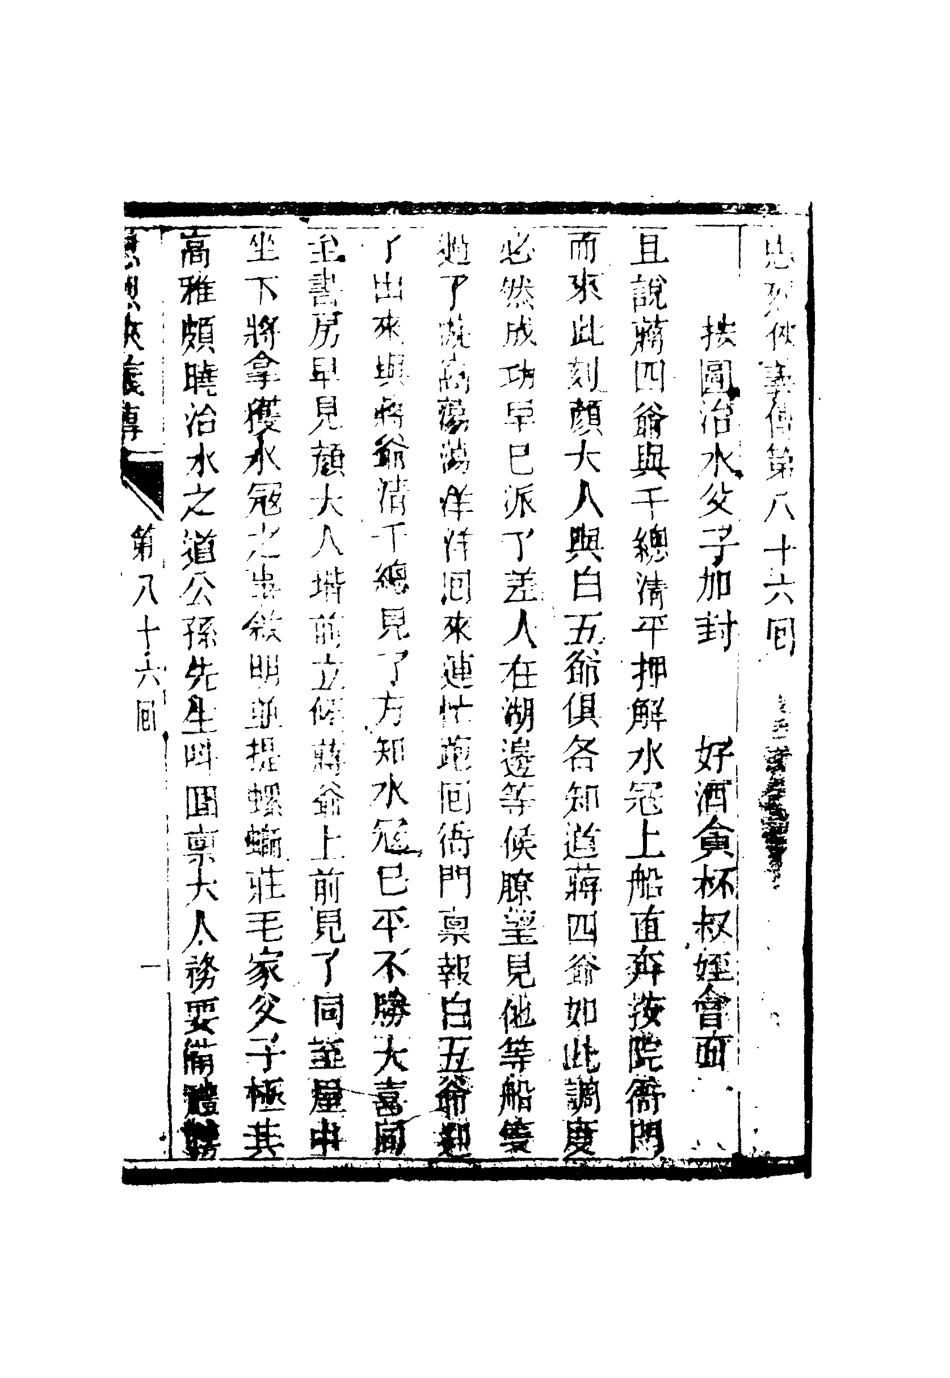 忠烈俠義傳第八十六回
按圖治水父子加封　好酒貪杯叔姪會面
且說蔣四爺與千總清平押解水冦上船直奔按院衙門
而來此刻顏大人與白五爺俱各知道蔣四爺如此調度
必然成功早巳派了差人在湖邊等候瞭望見他等船隻
過了蕩漾洋洋回來連忙跑回衙門禀報白五爺迎
了出來與蔣爺清千總見了方知水冦巳平不勝大喜同
至書房早見顏大人堦前立候蔣爺上前見了同至屋中
坐下將拿獲水冦之事敘明並提螺螄莊毛家父子極其
高雅頗曉治水之道公孫先生呌囬禀大人務要備禮
忠烈俠義傳
第八十六回
一